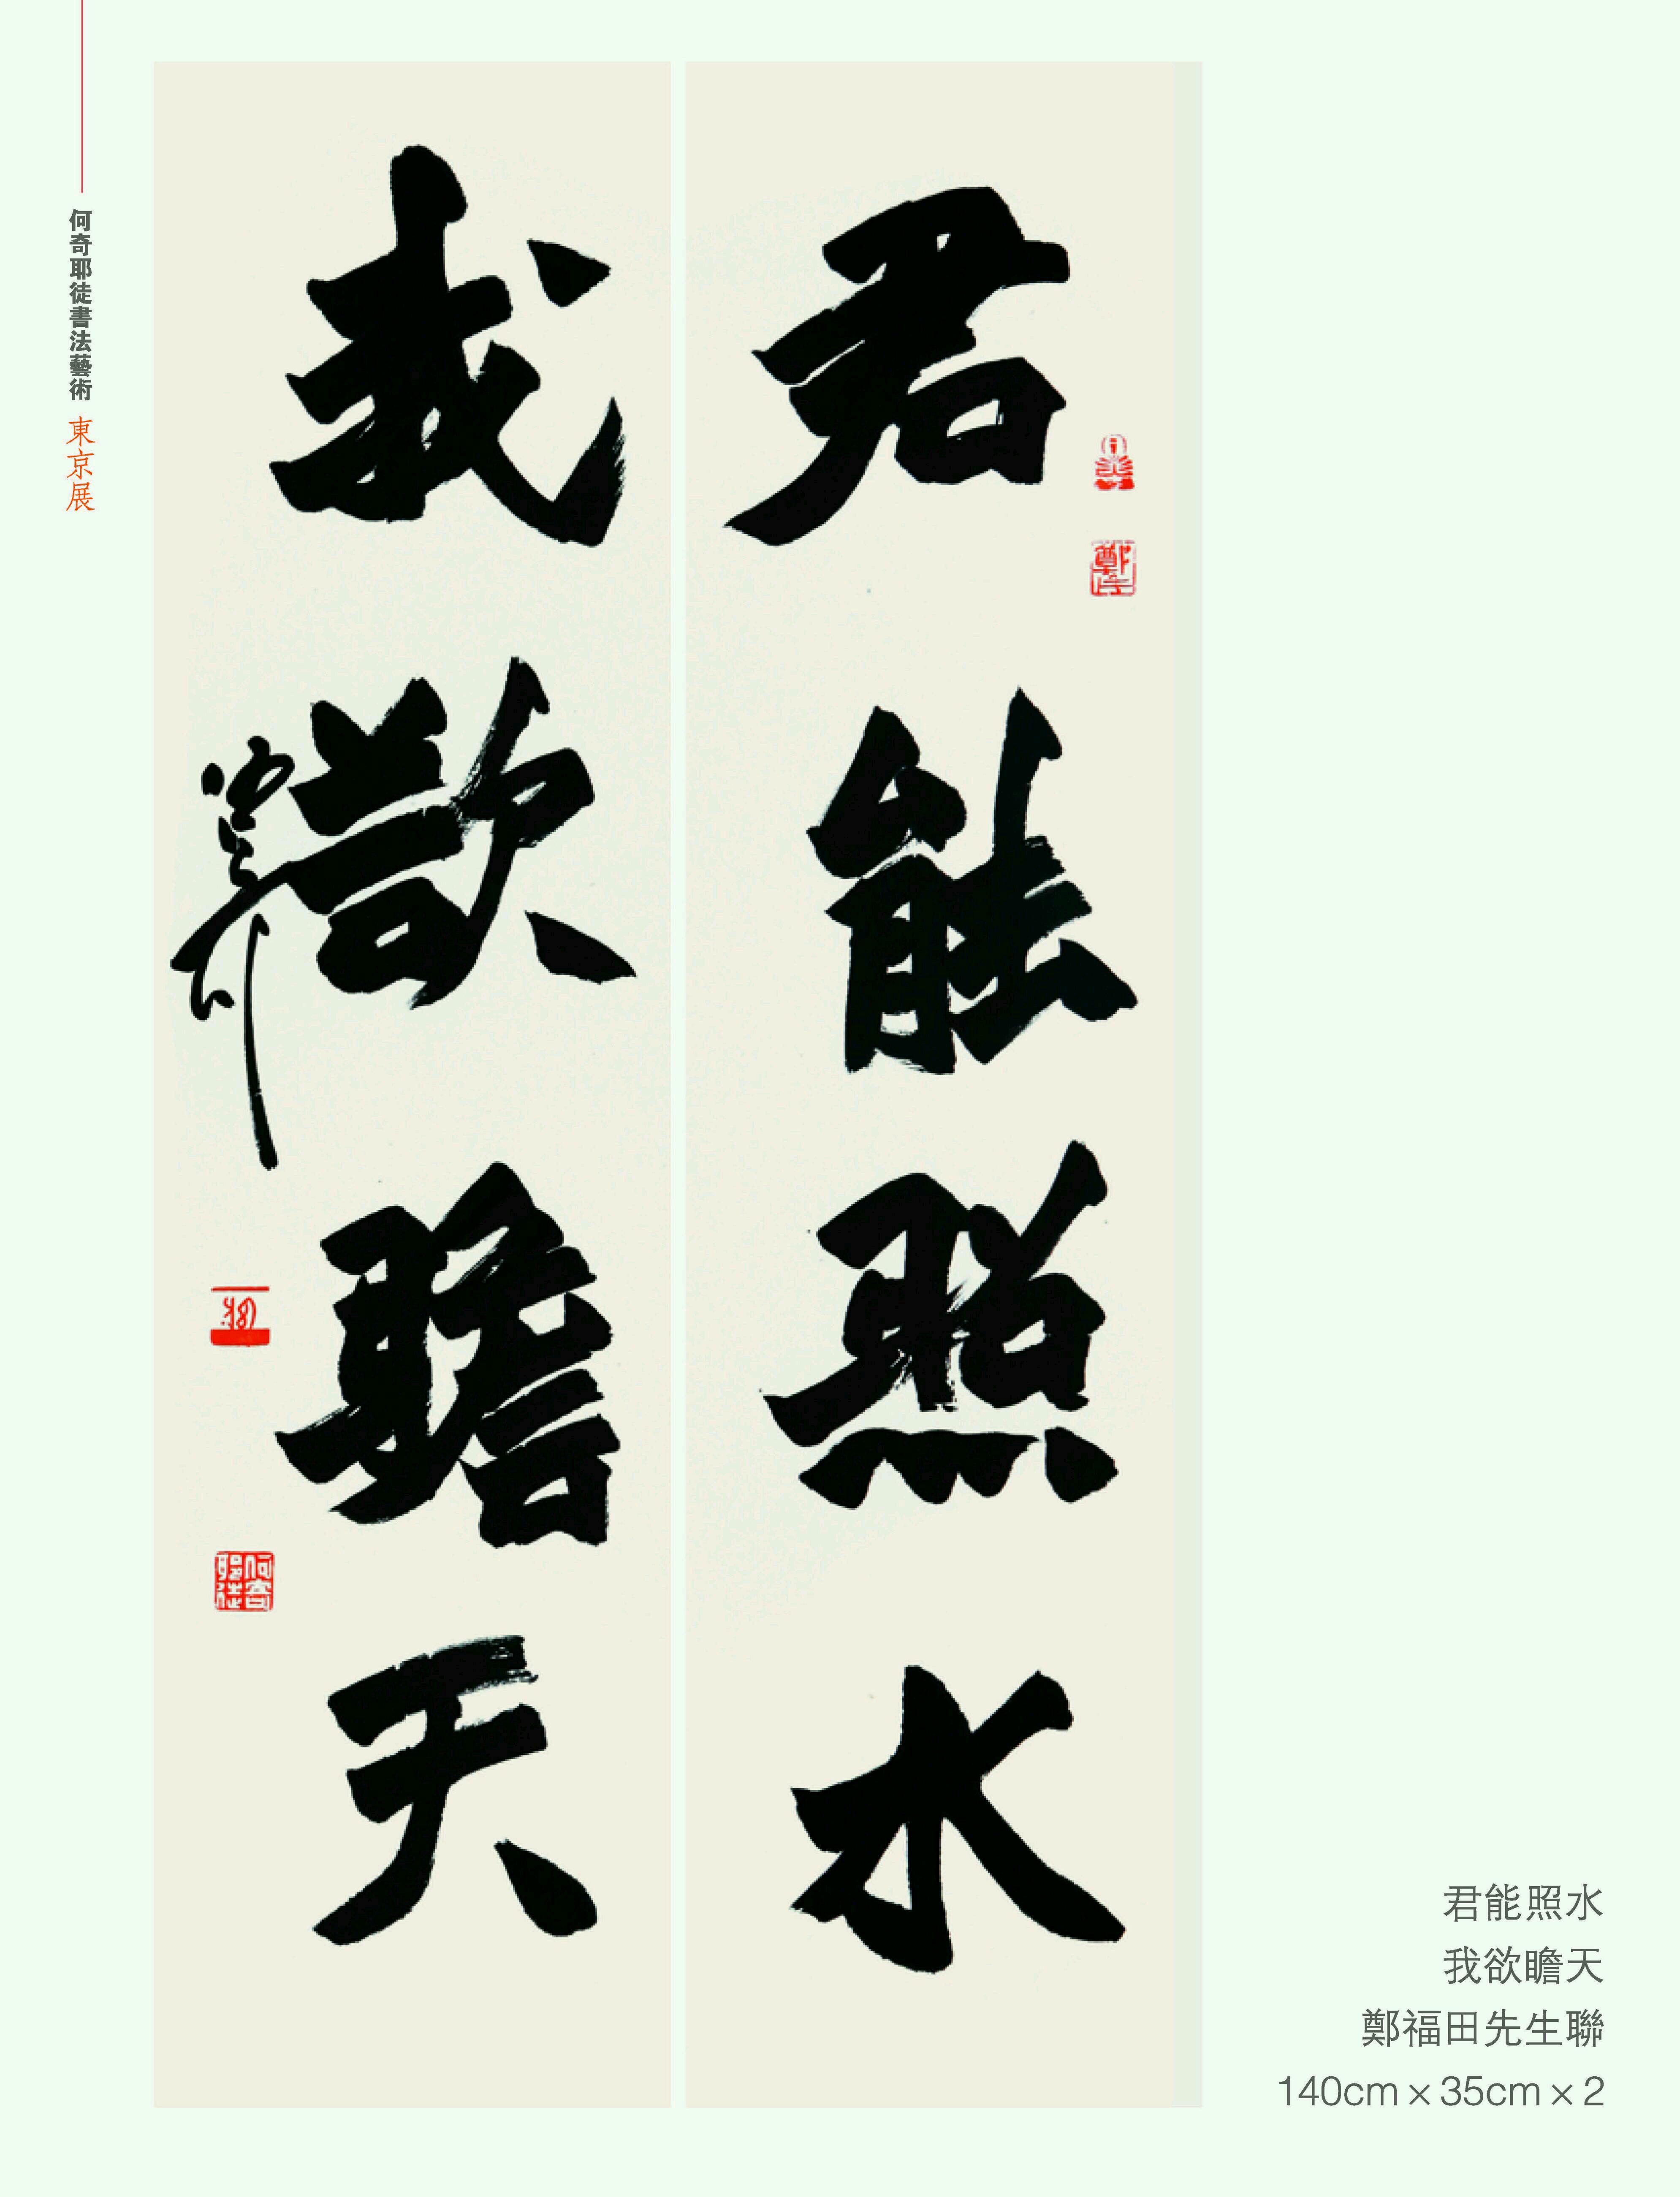 何奇耶徒書法藝術 東京展
君能照水
我欲瞻天
何奇耶徒
君能照水
我欲瞻天
鄭福田先生聯
140cm×35cm×2